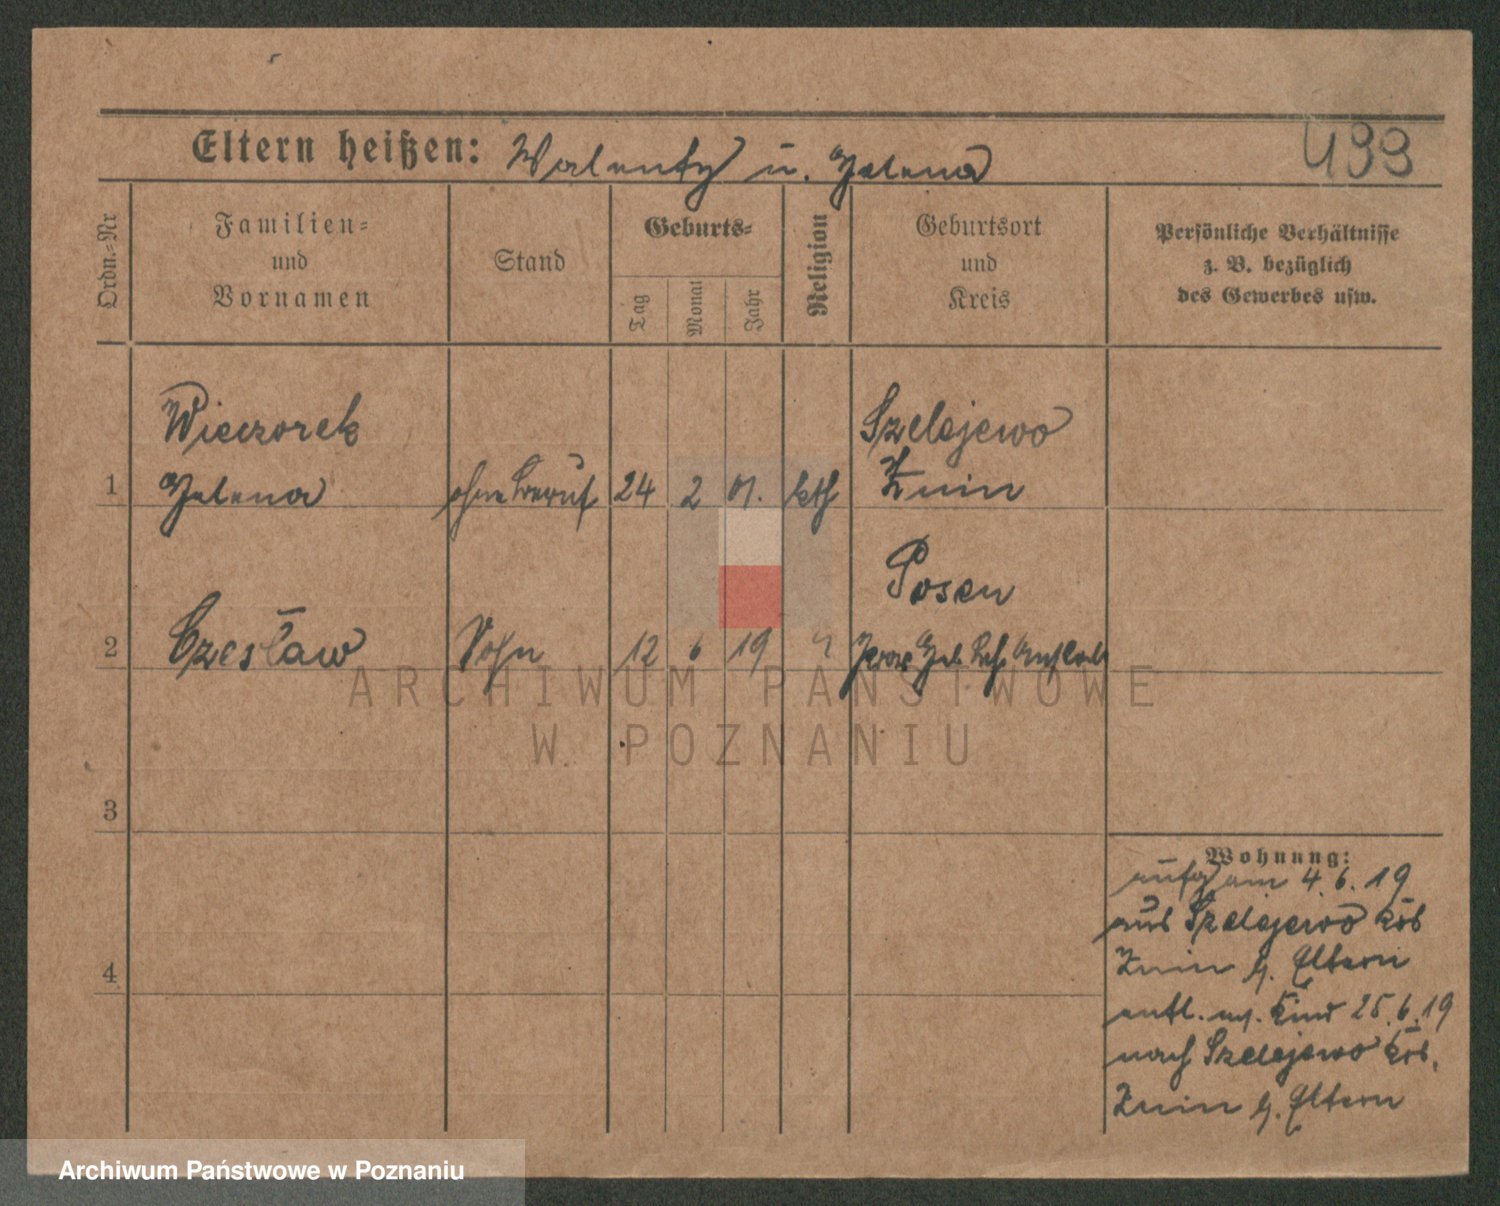 Eltern heißen: Walenty u. Helena
499
Ordn.=Nr
Familien=
und
Vornamen
Stand
Geburts=
Tag
Monat
Jahr
Religion
Geburtsort
und
Kreis
Persönliche Verhältnisse
z. B. bezüglich
des Gewerbes usw.
Wieczorek
Szelejewo
1 Helena ohne Beruf 24 2 01. kth Znin
Posen
2 Czesław Sohn 12 6 19 Prov Heb
ARCHIWUM PAŃSTWOWE
W POZNANIU
3
Wohnung:
am 4.6.19
aus Szelejewo Krs
Znin b. Eltern
4
entl. m. Kind 25.6.19
nach Szelejewo Krs.
Znin b. Eltern
Archiwum Państwowe w Poznaniu